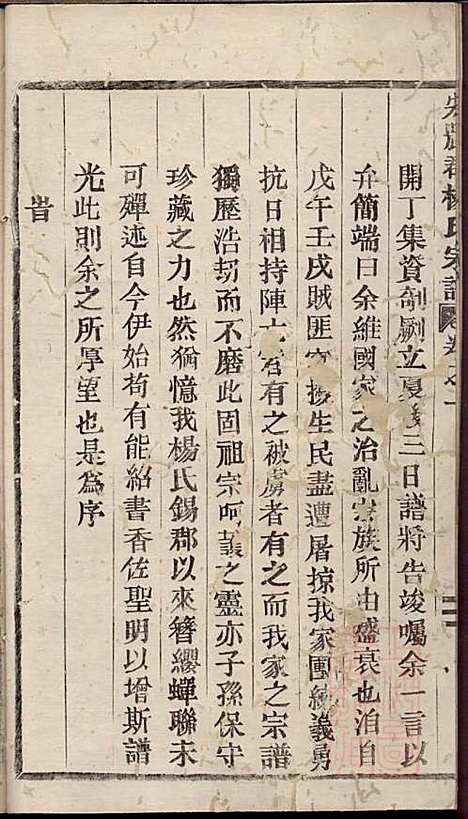 楊氏宗譜 卷之一
開丁集資剞劂立夏後三日譜將告竣囑余一言以
弁簡端曰余維國家之治亂宗族所由盛衰也洎自
戊午壬戌賊匪擾生民盡遭屠掠我家團練義勇
抗日相持陣亡者有之被虜者有之而我家之宗譜
獨歷浩刧而不磨此固祖宗呵護之靈亦子孫保守
珍藏之力也然猶憶我楊氏錫郡以來簪纓蟬聯未
可殫述自今伊始苟有能紹書香佐聖明以增斯譜
光此則余之所厚望也是為序
旹